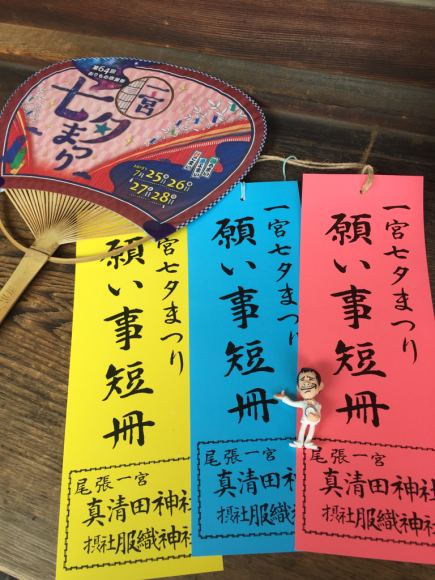 第64回
おりもの感謝祭
一宮
七夕まつり
7月25日26日
27日28日
宮七夕まつり
願い事短冊
尾張一宮
真清田神社
摂社服織神
一宮七夕まつり
願い事短冊
尾張一宮
真清田神社
摂社服織神
一宮七夕まつり
願い事短冊
尾張一宮
真清田神社
摂社服織神社